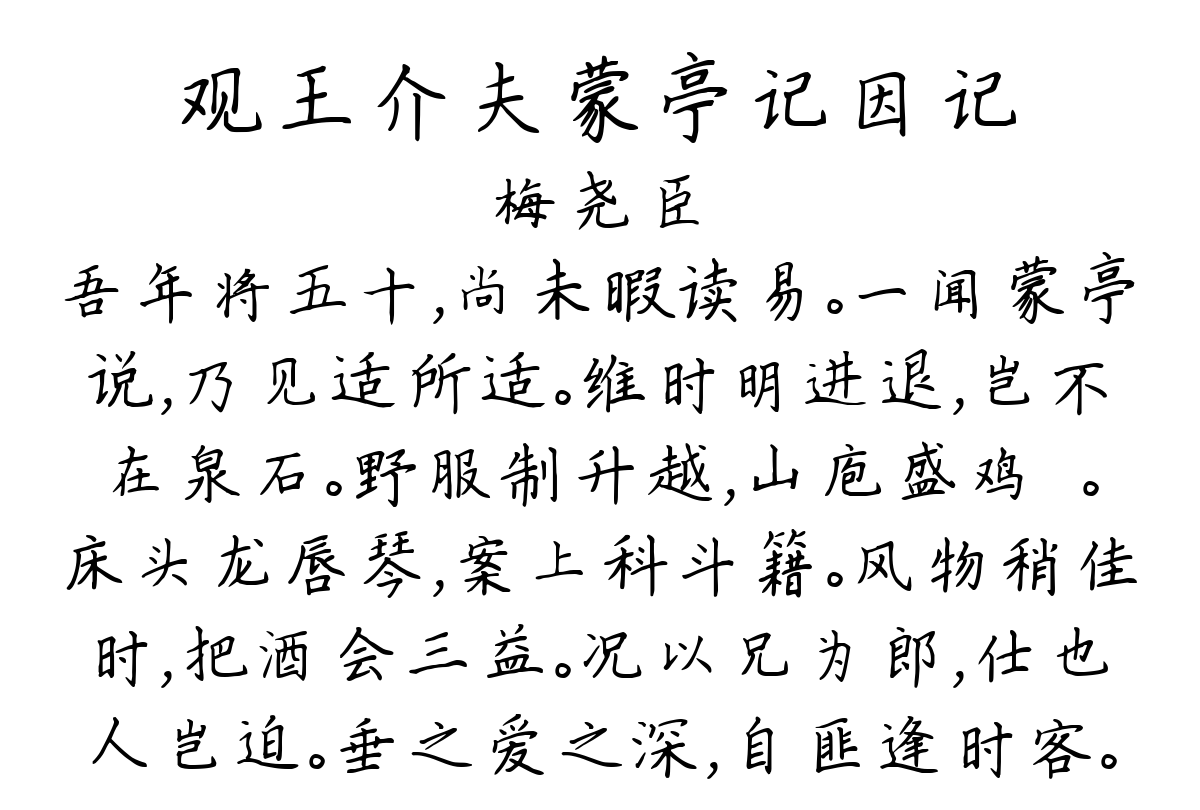 观王介夫蒙亭记因记
梅尧臣
吾年将五十,尚未暇读易。一闻蒙亭
说,乃见适所适。维时明进退,岂不
在泉石。野服制升越,山庖盛鸡 。
床头龙唇琴,案上科斗籍。风物稍佳
时,把酒会三益。况以兄为郎,仕也
人岂迫。垂之爱之深,自匪逢时客。